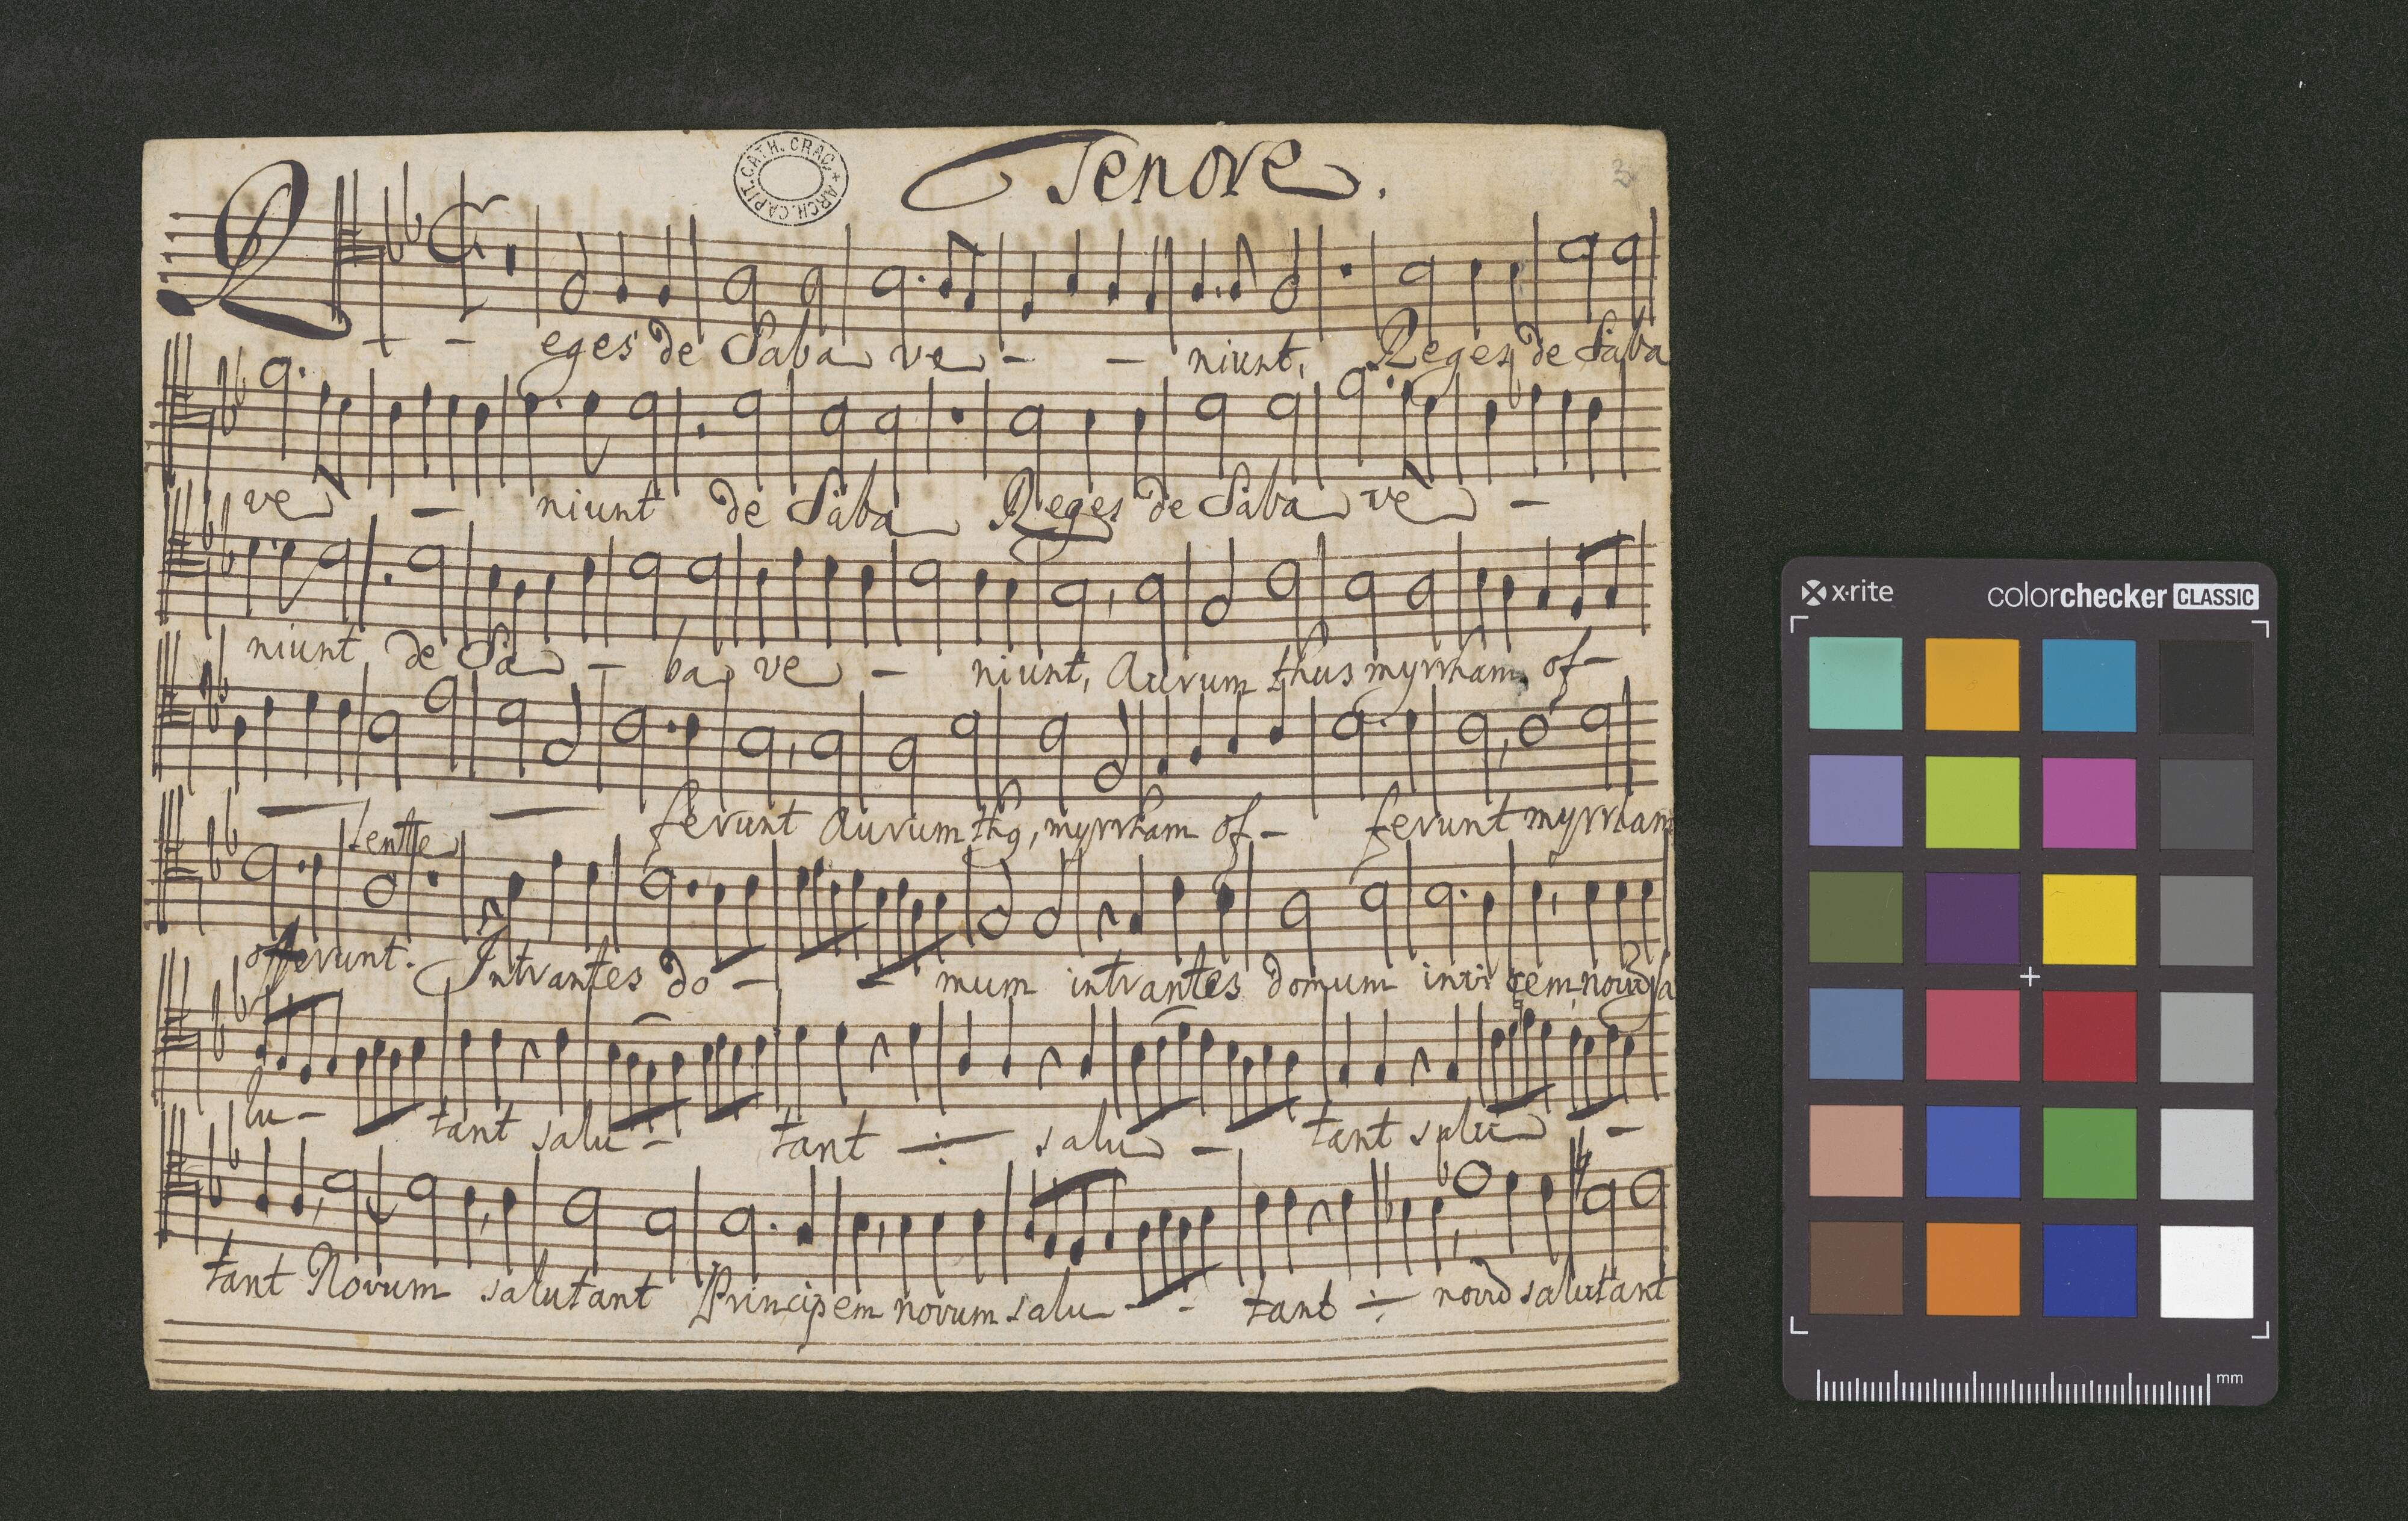 Tenore.
ARCH. CAPIT. CATH. CRAC. +
3
R - - eges de Saba ve - - niunt, Reges de Saba
ve - niunt de Saba Reges de Saba ve -
niunt de Sa - ba ve - niunt, Aurum thus myrrham of -
ferunt Aurum thg, myrrham of - ferunt myrrham
Lente
offerunt. Intrantes do - - mum intrantes domum novũ sa
lu - tant salu - tant salu - tant salu -
tant Novum salutant Principem novum salu - - tant novũ salutant
x·rite
colorchecker CLASSIC
mm